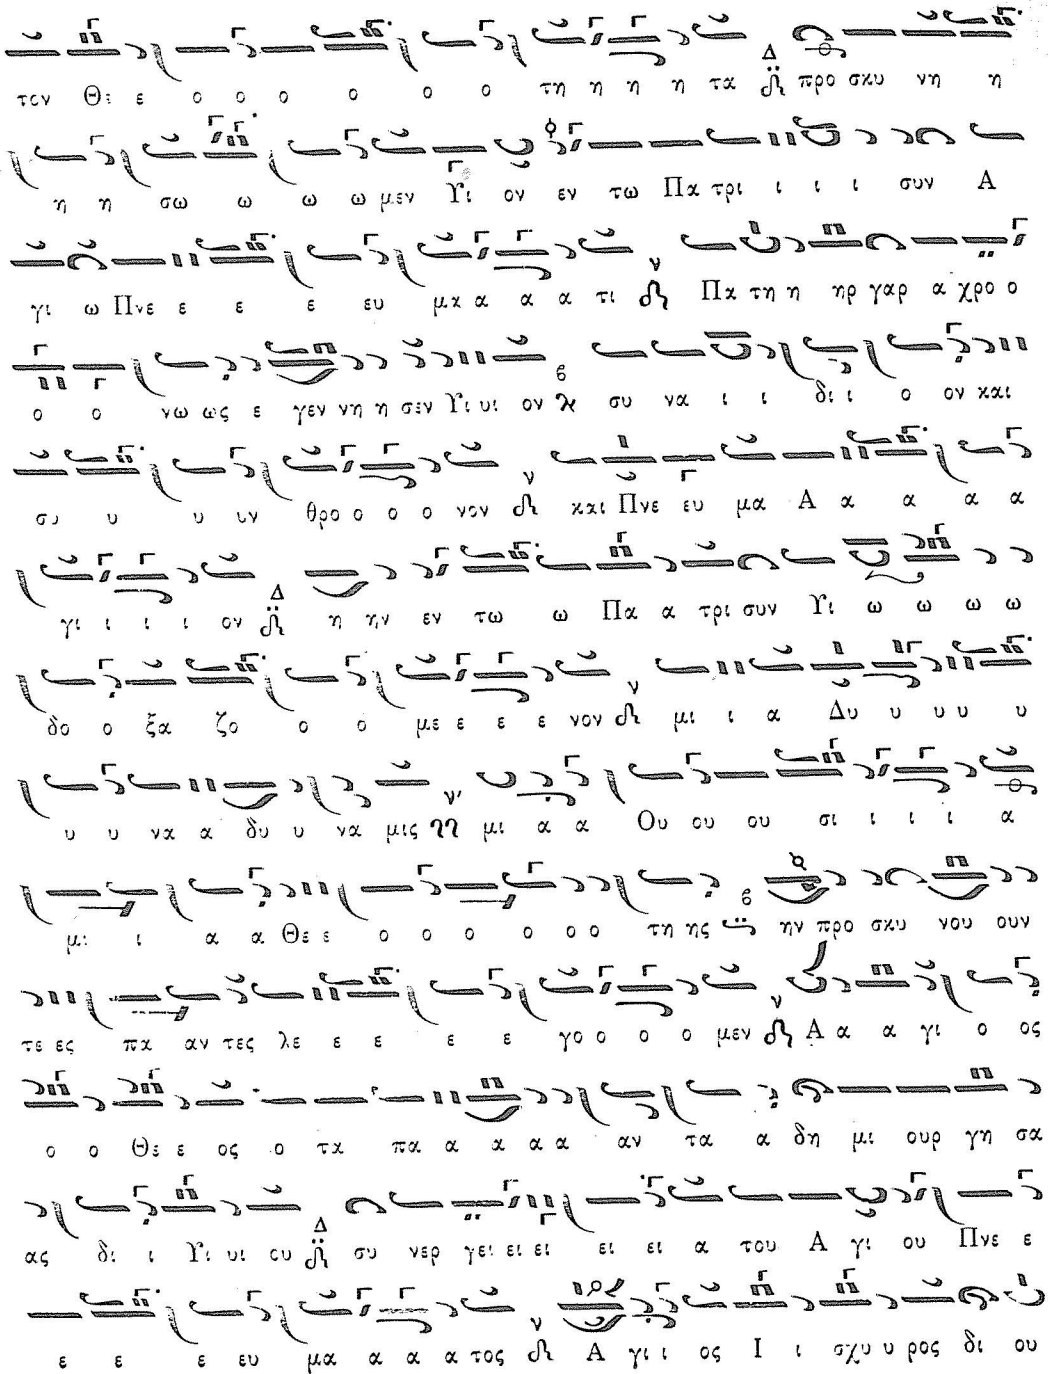 τον Θε ε ο ο ο ο ο ο τη η η η τα Δ προ σκυ νη η
η η σω ω ω ω μεν Υι ον εν τω Πα τρι ι ι ι συν Α
γι ω Πνε ε ε ε ευ μα α α α τι ν Πα τη η ηρ γαρ α χρο ο
ο ο νω ως ε γεν νη η σεν Υι υι ον ϐ συ να ι ι δι ι ο ον και
συ υ υ υν θρο ο ο ο νον ν και Πνε ευ μα Α α α α α
γι ι ι ι ον Δ η ην εν τω ω Πα α τρι συν Υι ω ω ω ω
δο ο ξα ζο ο ο με ε ε ε νον ν μι ι α Δυ υ υ υ υ
υ υ να α δυ υ να μις ν' μι α α Ου ου ου σι ι ι ι α
μι ι α α Θε ε ο ο ο ο ο ο τη ης ϐ ην προ σκυ νου ουν
τε ες πα αν τες λε ε ε ε ε γο ο ο ο μεν ν Α α α γι ο ος
ο ο Θε ε ος ο τα πα α α α α αν τα α δη μι ουρ γη σα
ας δι ι Υι υι ου Δ συ νερ γει ει ει ει ει ει α του Α γι ου Πνε ε
ε ε ε ευ μα α α α τος ν Α γι ι ος Ι ι σχυ υ ρος δι ου